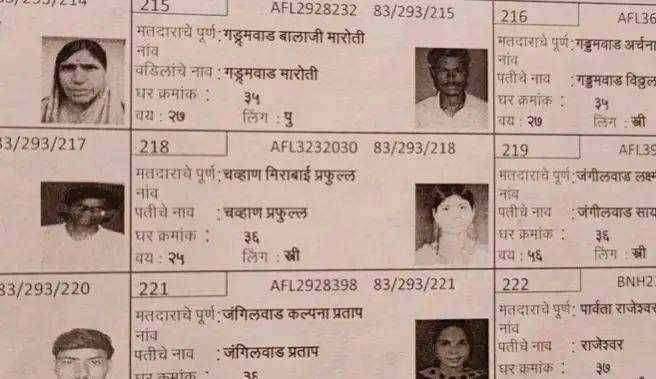 83/293/214
215 AFL2928232 83/293/215
मतदाराचे पूर्ण : गड्डमवाड बालाजी मारोती
नांव
वडिलांचे नाव : गड्डमवाड मारोती
घर क्रमांक : ३५
वय : २७ लिंग : पु
216
मतदाराचे पूर्ण : गड्डमवाड अर्चना
नांव
पतीचे नाव : गड्डमवाड विठ्ठल
घर क्रमांक : ३५
वय : २७ लिंग : स्त्री
83/293/217
218 AFL3232030 83/293/218
मतदाराचे पूर्ण : चव्हाण मिराबाई प्रफुल्ल
नांव
पतीचे नाव : चव्हाण प्रफुल्ल
घर क्रमांक : ३६
वय : २५ लिंग : स्त्री
219
मतदाराचे पूर्ण : जंगीलवाड
नांव
पतीचे नाव : जंगीलवाड
घर क्रमांक : ३६
वय : ५६ लिंग : स्त्री
83/293/220
221 AFL2928398 83/293/221
मतदाराचे पूर्ण : जंगिलवाड कल्पना प्रताप
नांव
पतीचे नाव : जंगिलवाड प्रताप
घर क्रमांक : ३६
222
मतदाराचे पूर्ण : पार्वता राजेश्वर
नांव
पतीचे नाव : राजेश्वर
घर क्रमांक : ३७